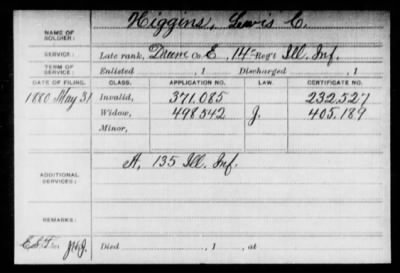 NAME OF SOLDIER: Higgins, Lewis C.
SERVICE: Late rank, Co. E, 14 Reg't Ill. Inf.
TERM OF SERVICE: Enlisted , 1 Discharged , 1
DATE OF FILING. CLASS. APPLICATION NO. LAW. CERTIFICATE NO.
1880 May 31 Invalid, 371.085 232.527
Widow, 498.542 J. 405.189
Minor,
ADDITIONAL SERVICES: A, 135 Ill. Inf.
REMARKS:
Died , 1 , at